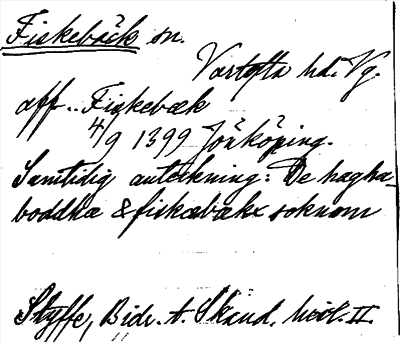 Fiskebäck sn.
Vartofta hd. Vg.
aff.. Fiskebæk
4/9 1399 Jönköping.
Samtidig anteckning: De hagha-
boddha & fiskæbækx soknom
Styffe, Bidr. t. Skand. hist. II.